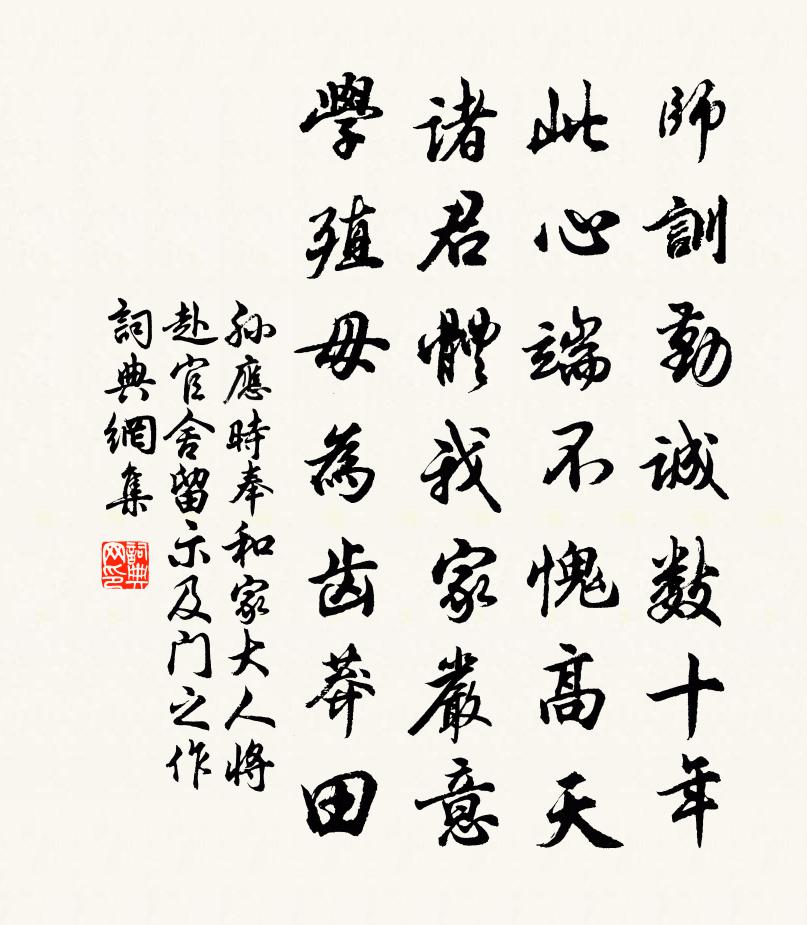 師訓勤誠数十年
此心端不愧高天
諸君體我家嚴意
學殖毋為齿莽田
孙應時奉和家大人将
赴官舍留示及门之作
詞典網集
詞典网印